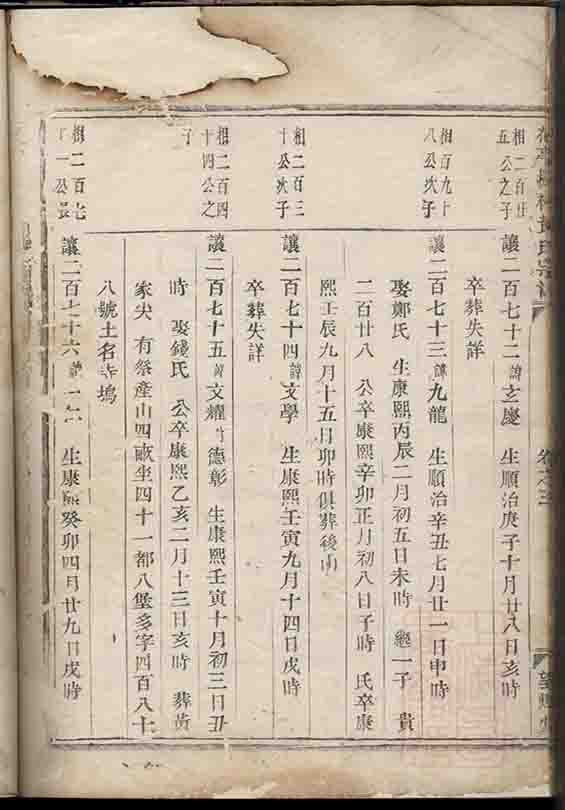 卷之三
相二百廿
五公之子
讓二百七十二諱玄慶　生順治庚子十月廿八日亥時
卒葬失詳
相百九十
八公次子
讓二百七十三諱九龍　生順治辛丑七月廿一日申時
娶鄭氏　生康熙丙辰二月初五日未時　繼一子　貴
二百廿八　公卒康熙辛卯正月初八日子時　氏卒康
熙壬辰九月十五日卯時俱葬後山
相二百三
十公次子
讓二百七十四諱文學　生康熙壬寅九月十四日戌時
卒葬失詳
相二百四
十四公之
子
讓二百七十五諱文耀　德彰　生康熙壬寅十月初三日丑
時　娶錢氏　公卒康熙乙亥二月十三日亥時　葬黃
家尖　有祭產山四畝坐四十一都八堡多字四百八十
八號土名寺塢
相二百七
一公長
讓二百七十六諱　生康熙癸卯四月廿九日戌時